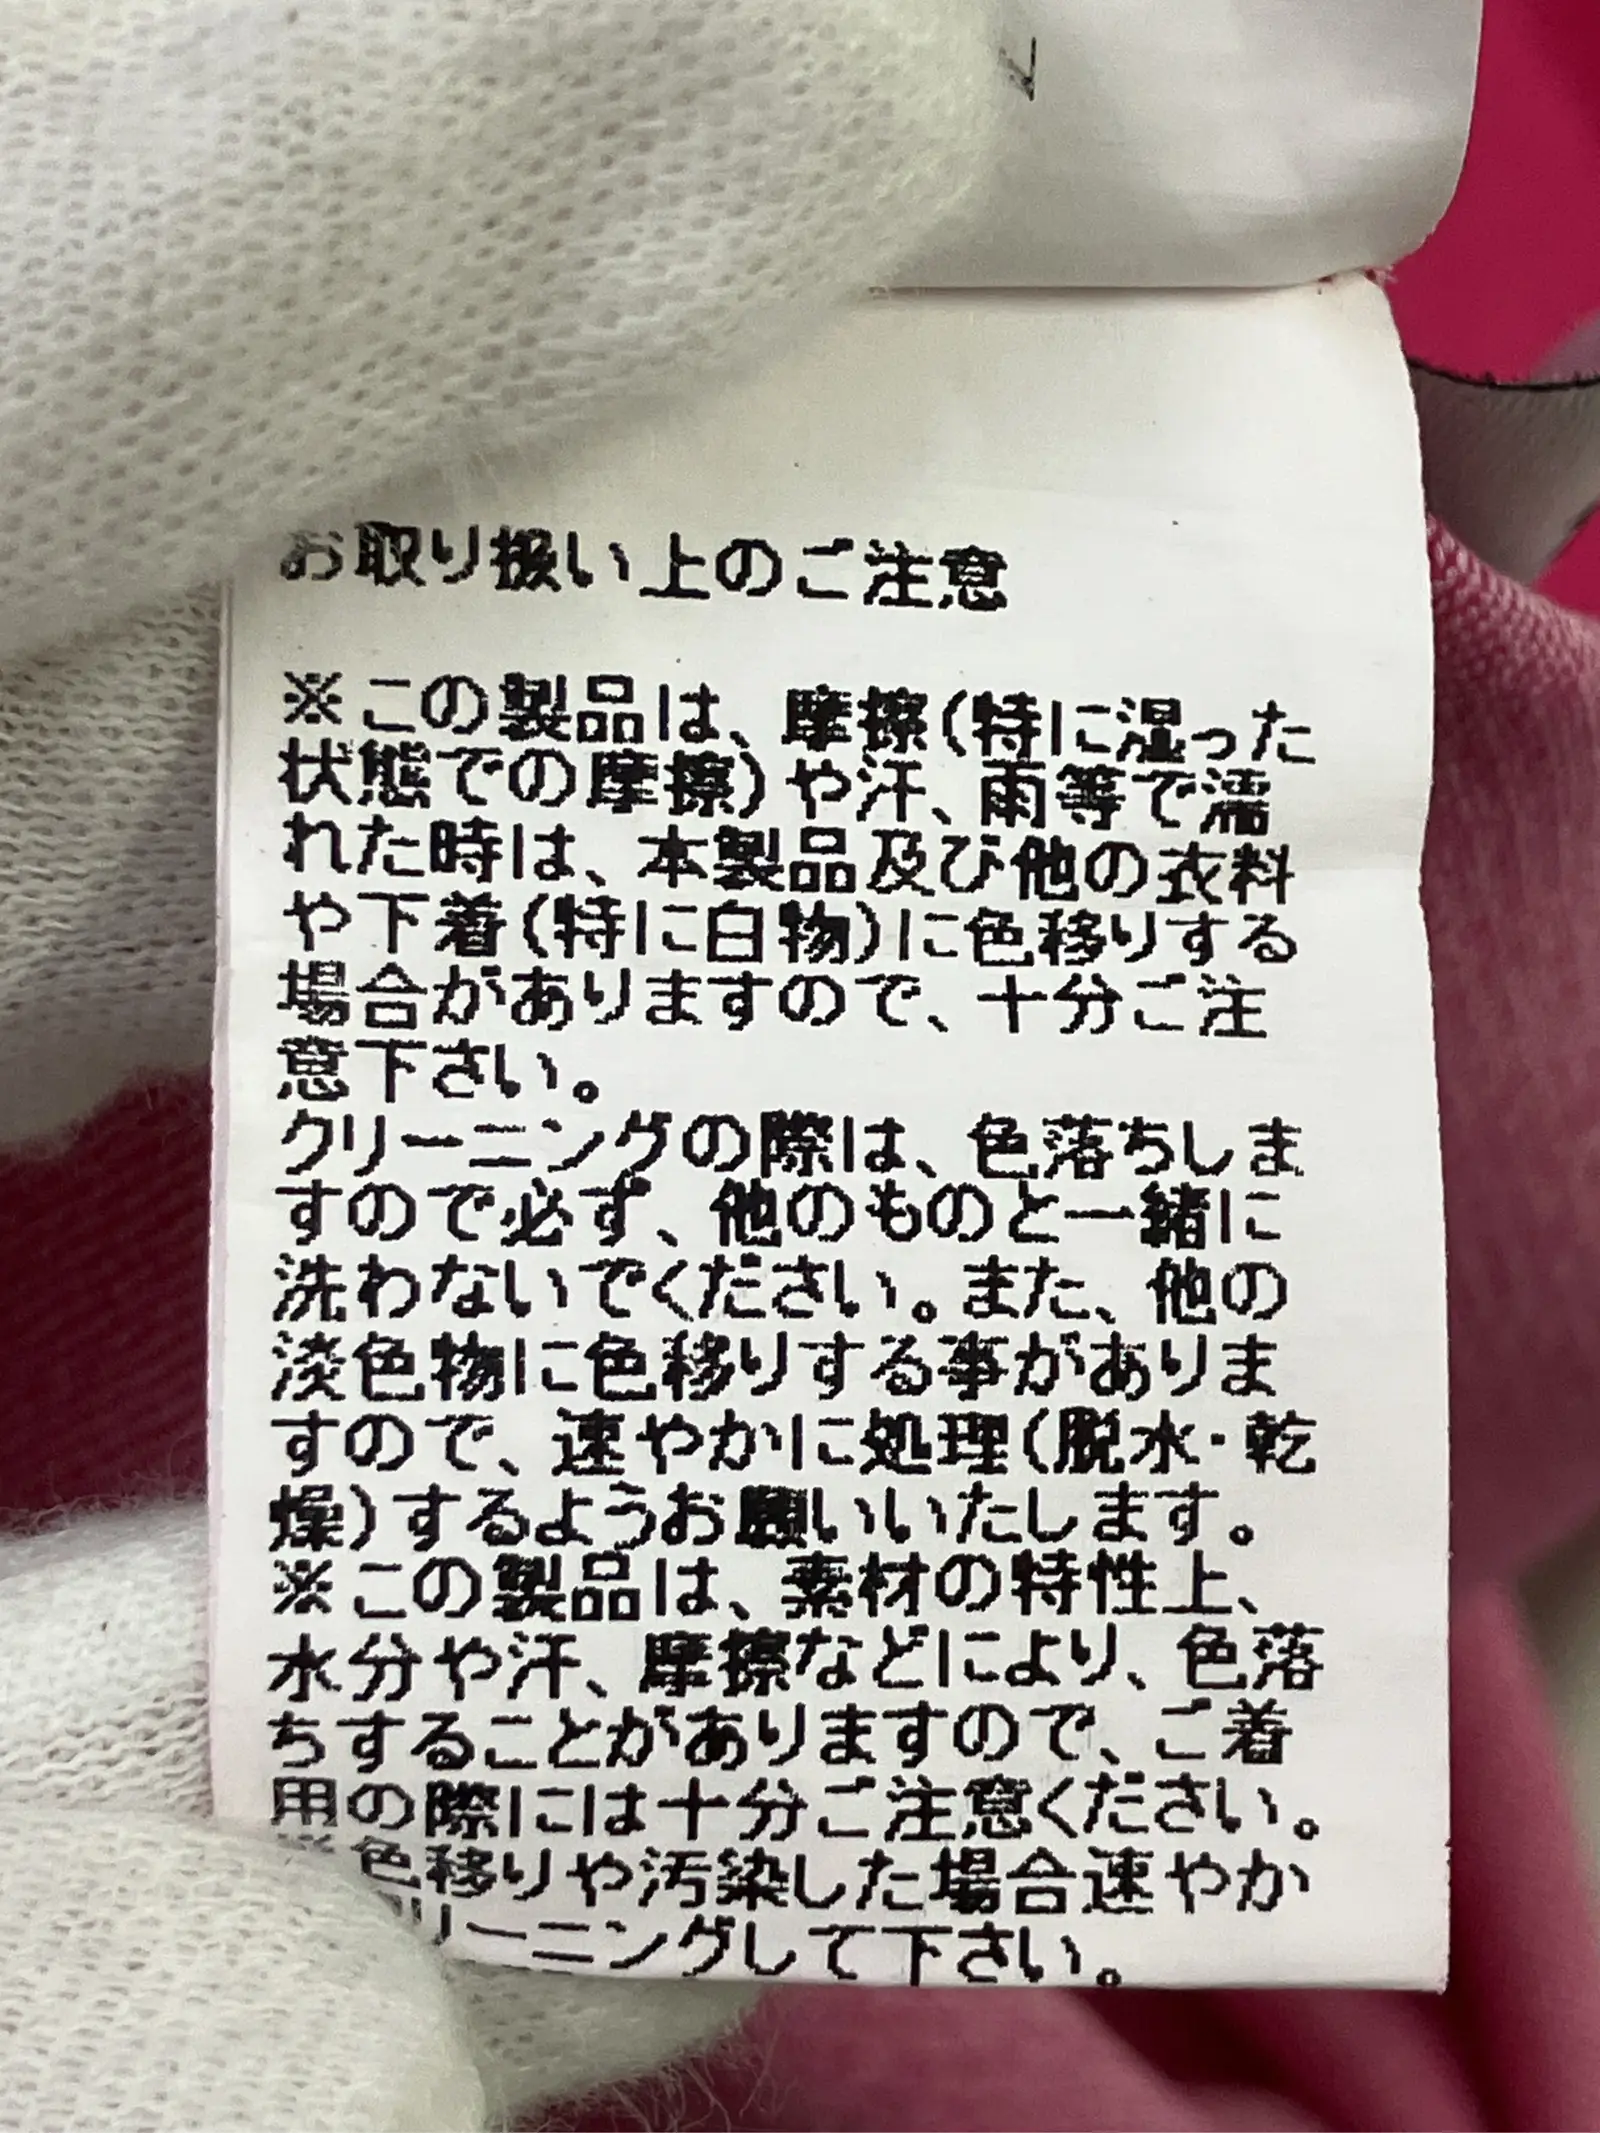 お取り扱い上のご注意
※この製品は、摩擦(特に湿った
状態での摩擦)や汗、雨等で濡
れた時は、本製品及び他の衣料
や下着(特に白物)に色移りする
場合がありますので、十分ご注
意下さい。
クリーニングの際は、色落ちしま
すので必ず、他のものと一緒に
洗わないでください。また、他の
淡色物に色移りする事がありま
すので、速やかに処理(脱水・乾
燥)するようお願いいたします。
※この製品は、素材の特性上、
水分や汗、摩擦などにより、色落
ちすることがありますので、ご着
用の際には十分ご注意ください。
※色移りや汚染した場合速やか
リーニングして下さい。